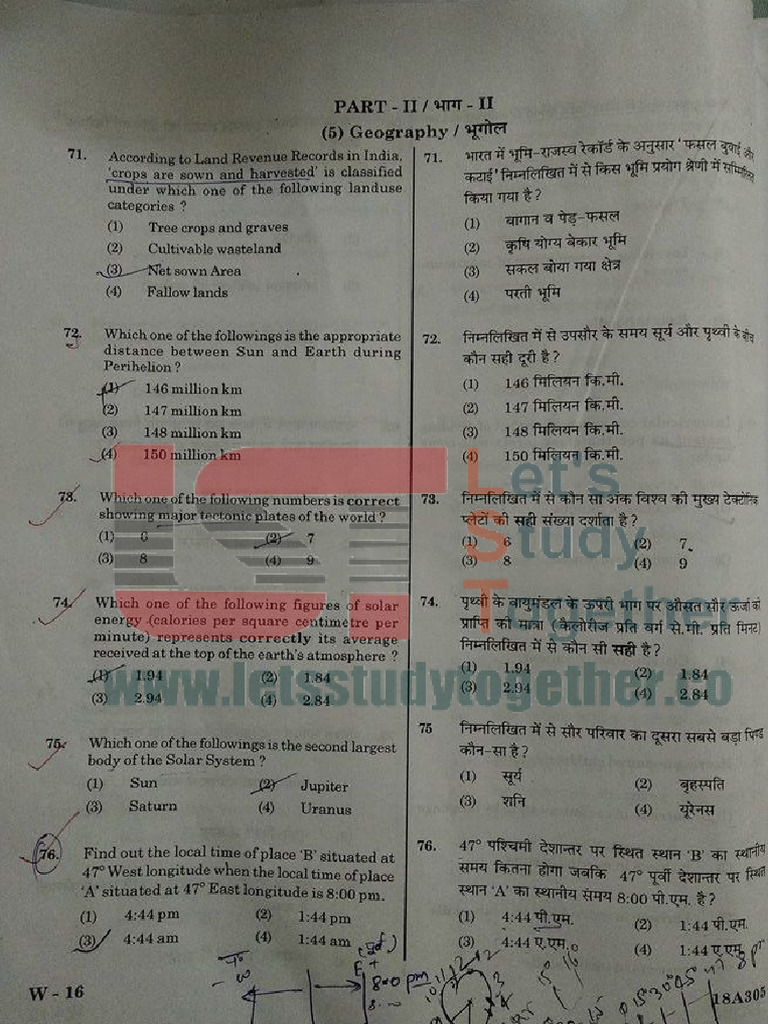 PART - II / भाग - II
(5) Geography / भूगोल
71. According to Land Revenue Records in India,
'crops are sown and harvested' is classified
under which one of the following landuse
categories ?
(1) Tree crops and graves
(2) Cultivable wasteland
(3) Net sown Area
(4) Fallow lands
72. Which one of the followings is the appropriate
distance between Sun and Earth during
Perihelion ?
(1) 146 million km
(2) 147 million km
(3) 148 million km
(4) 150 million km
73. Which one of the following numbers is correct
showing major tectonic plates of the world ?
(1) 6 (2) 7
(3) 8 (4) 9
74. Which one of the following figures of solar
energy (calories per square centimetre per
minute) represents correctly its average
received at the top of the earth's atmosphere ?
(1) 1.94 (2) 1.84
(3) 2.94 (4) 2.84
75. Which one of the followings is the second largest
body of the Solar System ?
(1) Sun (2) Jupiter
(3) Saturn (4) Uranus
76. Find out the local time of place 'B' situated at
47° West longitude when the local time of place
'A' situated at 47° East longitude is 8:00 pm.
(1) 4:44 pm (2) 1:44 pm
(3) 4:44 am (4) 1:44 am
71. भारत में भूमि-राजस्व रेकॉर्ड के अनुसार 'फसल बुवाई और
कटाई' निम्नलिखित में से किस भूमि प्रयोग श्रेणी में सम्मिलित
किया गया है ?
(1) बागान व पेड़-फसल
(2) कृषि योग्य बेकार भूमि
(3) सकल बोया गया क्षेत्र
(4) परती भूमि
72. निम्नलिखित में से उपसौर के समय सूर्य और पृथ्वी के बीच
कौन सही दूरी है ?
(1) 146 मिलियन कि.मी.
(2) 147 मिलियन कि.मी.
(3) 148 मिलियन कि.मी.
(4) 150 मिलियन कि.मी.
73. निम्नलिखित में से कौन सा अंक विश्व की मुख्य टेक्टोनिक
प्लेटों की सही संख्या दर्शाता है ?
(1) 6 (2) 7
(3) 8 (4) 9
74. पृथ्वी के वायुमंडल के ऊपरी भाग पर औसत सौर ऊर्जा की
प्राप्ति की मात्रा (कैलोरीज प्रति वर्ग से.मी. प्रति मिनट)
निम्नलिखित में से कौन सी सही है ?
(1) 1.94 (2) 1.84
(3) 2.94 (4) 2.84
75 निम्नलिखित में से सौर परिवार का दूसरा सबसे बड़ा पिण्ड
कौन-सा है ?
(1) सूर्य (2) बृहस्पति
(3) शनि (4) यूरेनस
76. 47° पश्चिमी देशान्तर पर स्थित स्थान 'B' का स्थानीय
समय कितना होगा जबकि 47° पूर्वी देशान्तर पर स्थित
स्थान 'A' का स्थानीय समय 8:00 पी.एम. है ?
(1) 4:44 पी.एम. (2) 1:44 पी.एम.
(3) 4:44 ए.एम. (4) 1:44 ए.एम.
W - 16
18A305
LST
Let's
Study
Together
www.letsstudytogether.co
8:00 pm